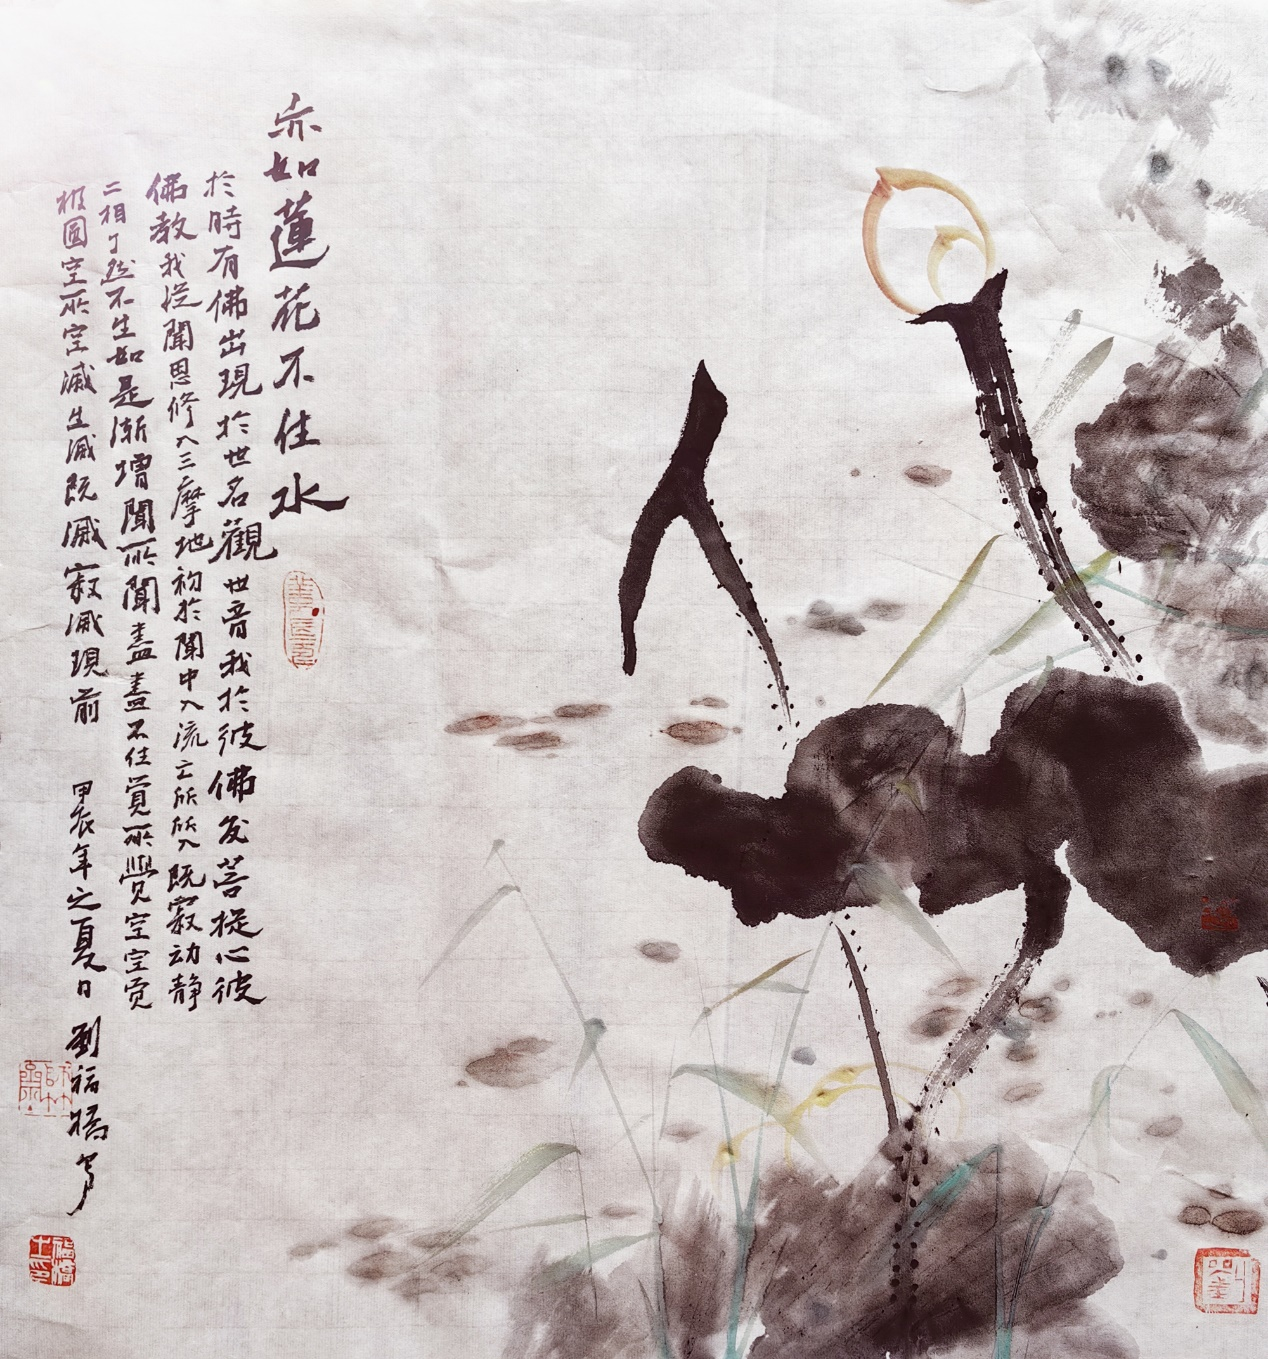 亦如蓮花不住水
於時有佛出現於世名觀世音我於彼佛发菩提心彼
佛教我从聞思修入三摩地初於聞中入流亡所所入既寂动静
二相了然不生如是渐增聞所聞盡盡不住覚所覺空空覚
極圆空所空滅生滅既滅寂滅現前
甲辰年之夏日 劉福橋写